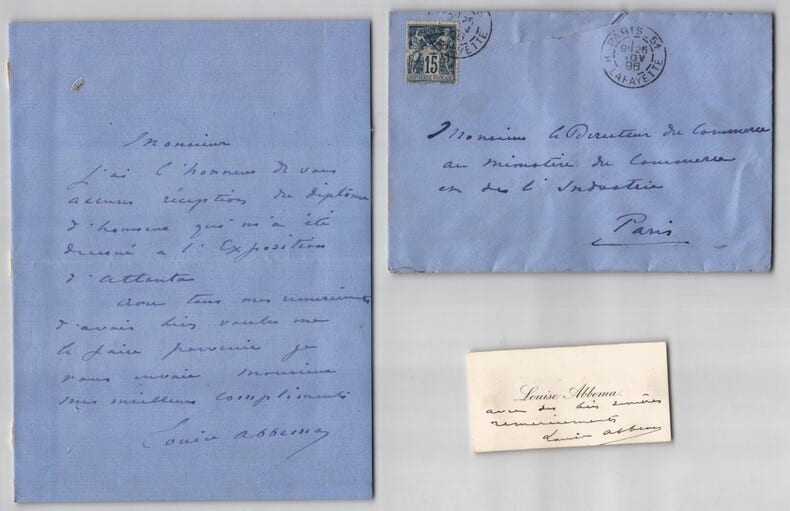 Monsieur
j'ai l'honneur de vous
accuser réception du diplôme
d'honneur qui m'a été
décerné a l'Exposition
d'Attenta
avec tous mes remerciements
d'avoir bien voulu me
le faire parvenir je
vous envoie Monsieur
mes meilleurs compliments
Louise Abbema
15
REPUBLIQUE FRANCAISE
LAFAYETTE
PARIS - 51
9E 25
NOV
96
R. LAFAYETTE
Monsieur le Directeur du Commerce
au ministère du Commerce
et de l'Industrie
Paris
Louise Abbema.
avec ses bien sincères
remerciements
Louise Abbema